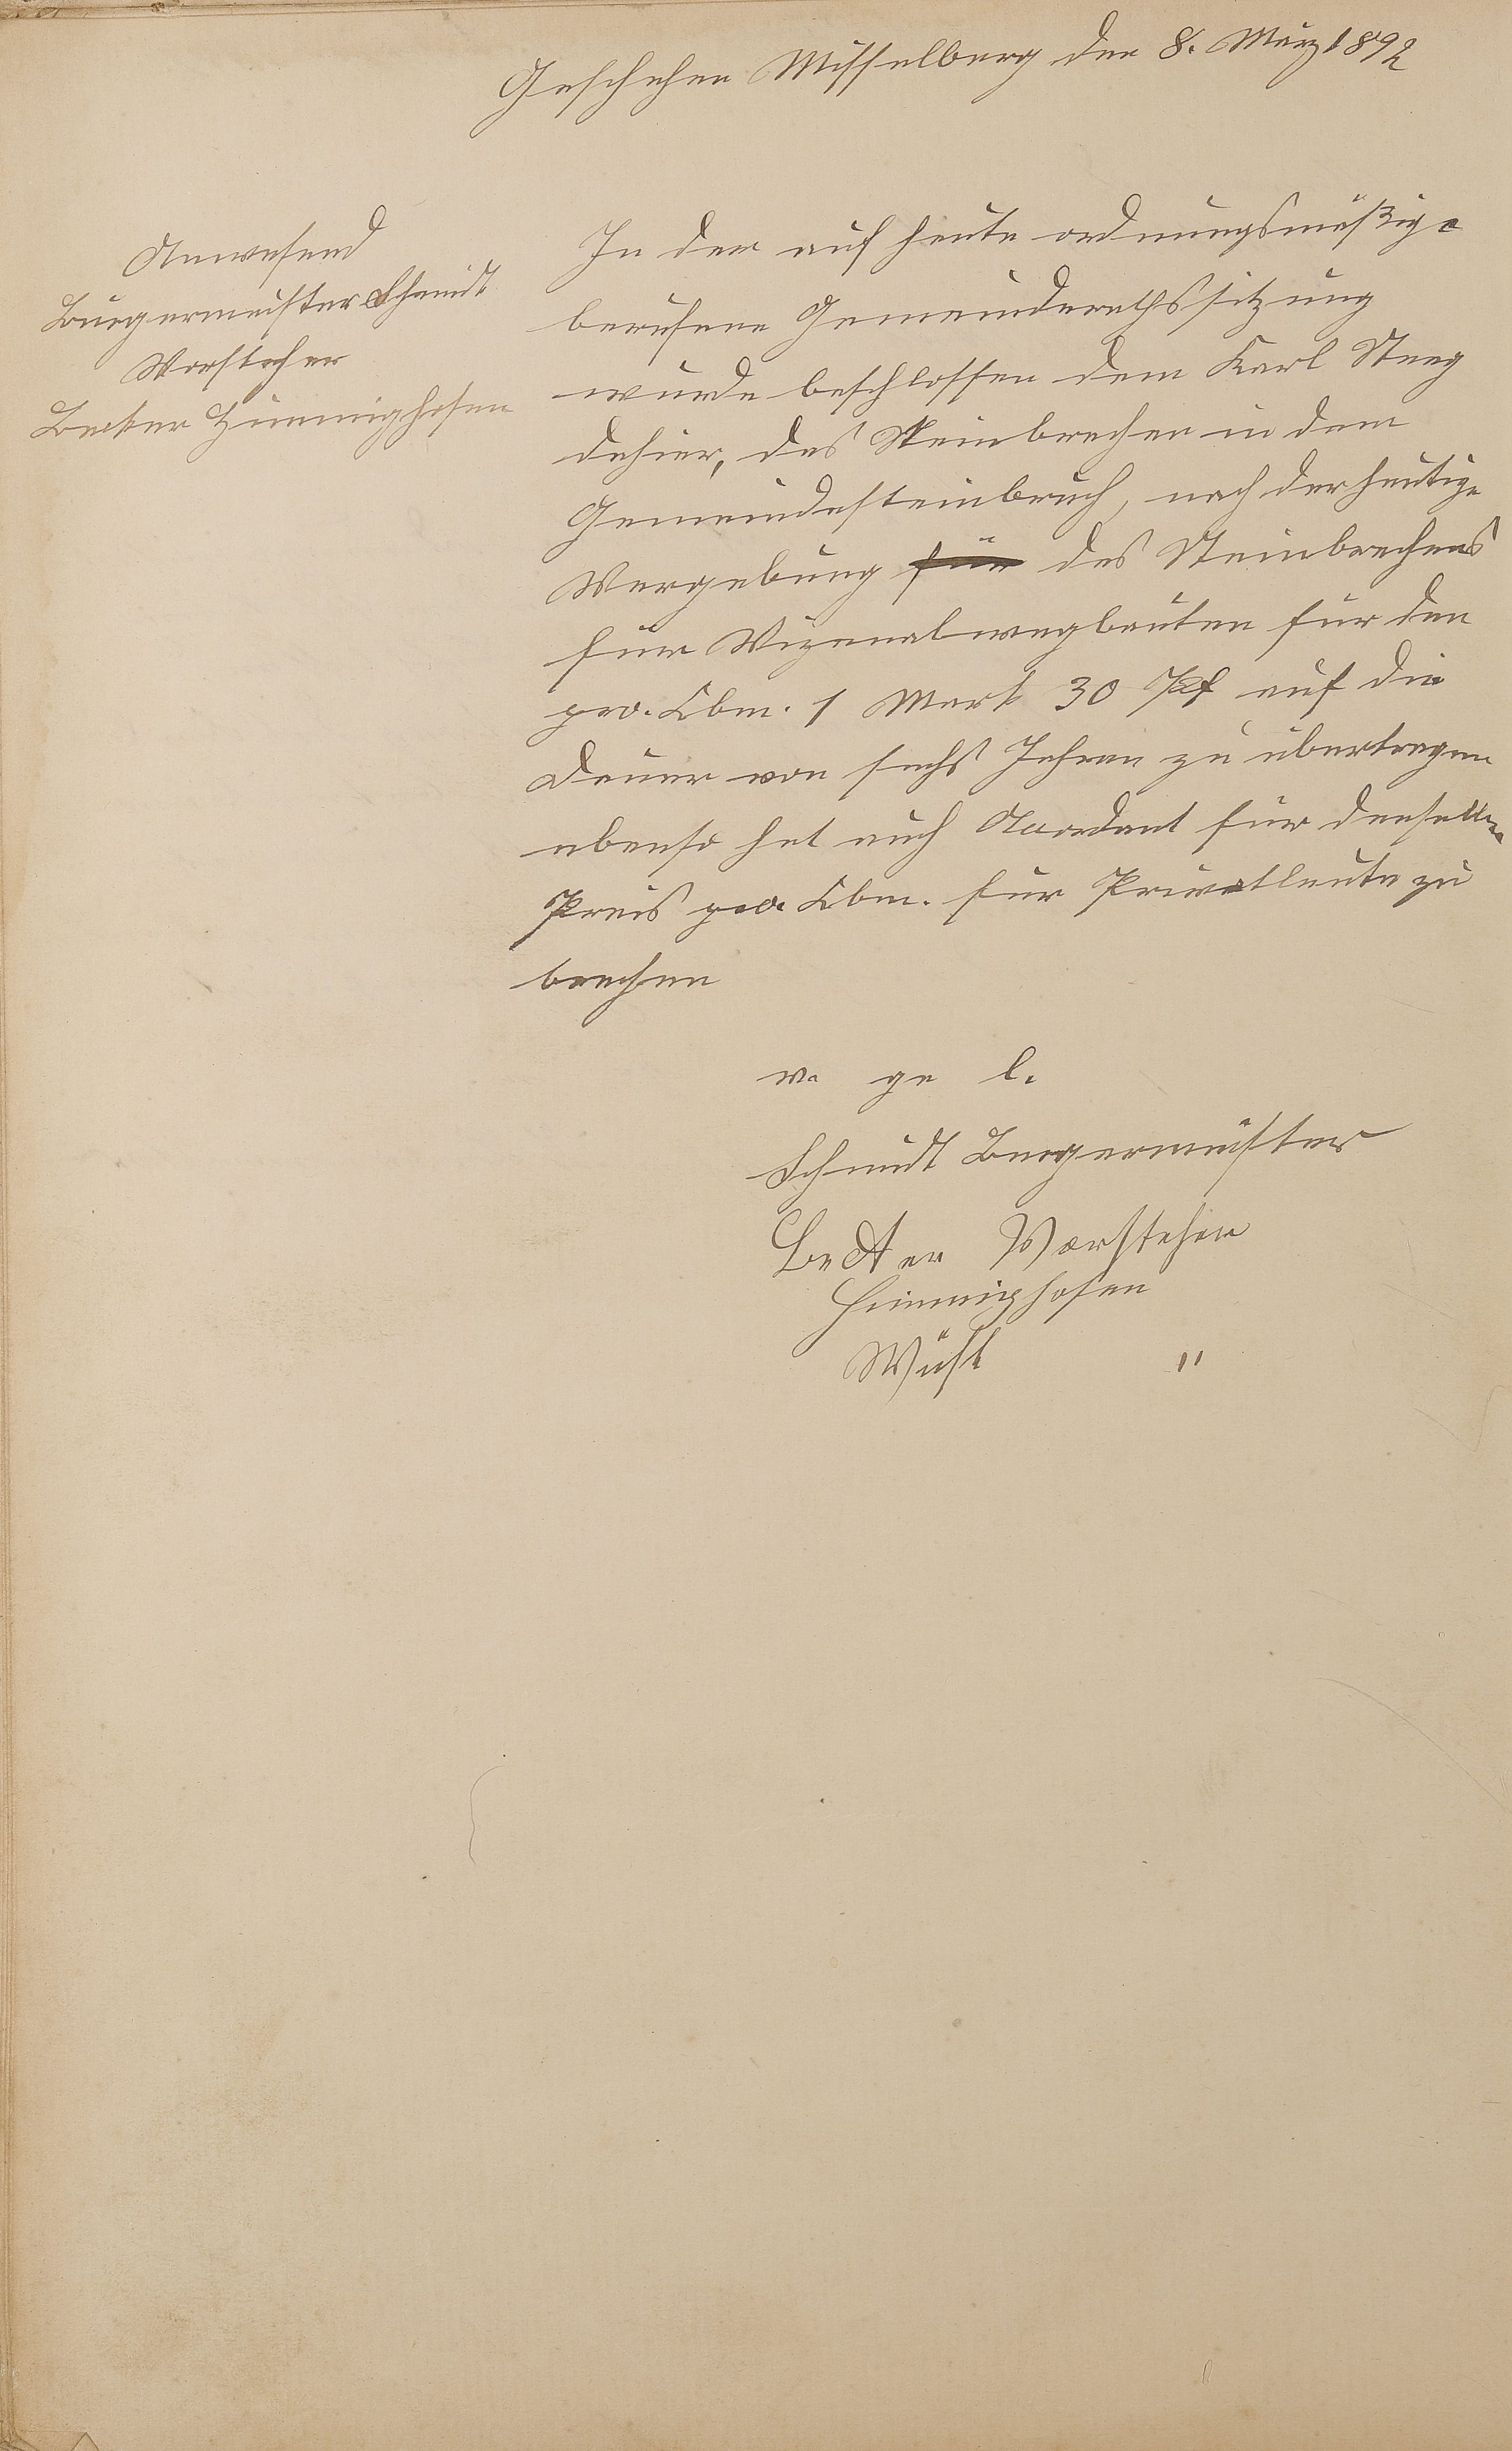 Geschehen Misselberg den 8. März 1892
Anwesend
Bürgermeister Schmidt
Vorsteher
Becker Himmighofen
In der auf heute ordnungsmäßige
berufene Gemeinderathssitzung
wurde beschlossen dem Karl Steeg
dahier, das Steinbrechen in dem
Gemeindesteinbruch, nach der heutige
Vergebung für des Steinbrechens
für Vizenalwegbauten für den
pro. Cbm. 1 Mark 30 Pf auf die
Dauer von sechs Jahren zu übertragen
ebenso hat auch Acordant für denselben
Preis pro. Cbm. für Privatleute zu
brechen
v. ge l.
Schmidt Burgermeister
Becker Vorsteher
Himmighofen
"